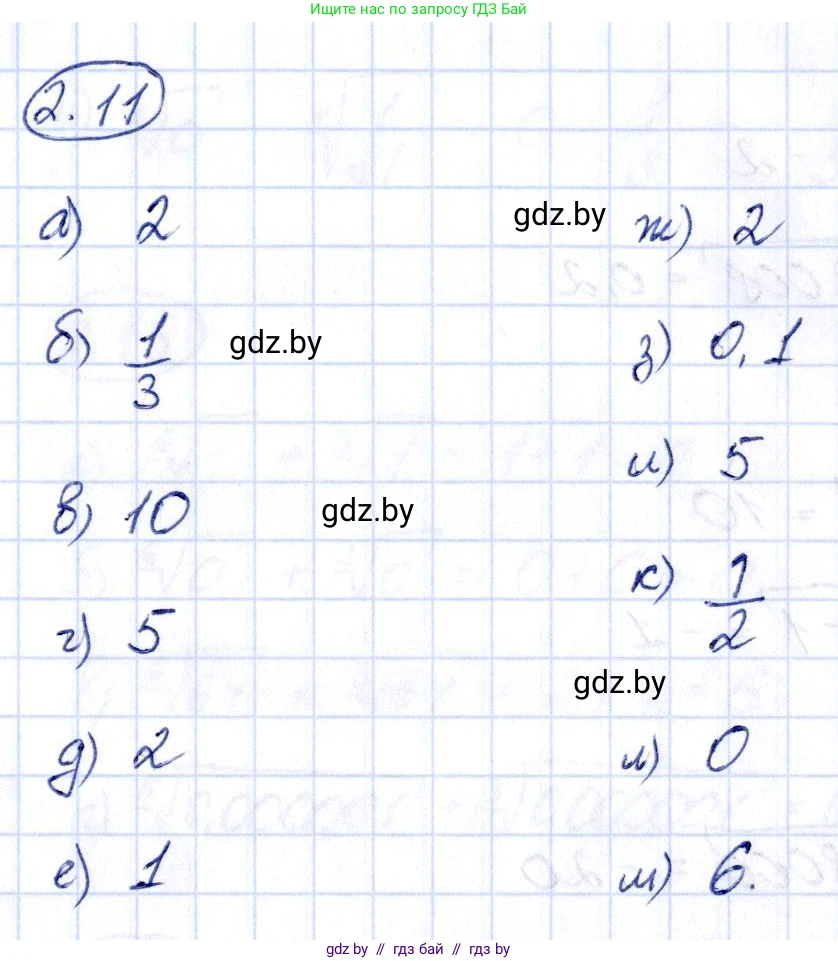 Ищите нас по запросу ГДЗ Бай
2.11
а) 2
б) 1/3
в) 10
г) 5
д) 2
е) 1
ж) 2
з) 0,1
и) 5
к) 1/2
л) 0
м) 6.
gdz.by
gdz.by
gdz.by
gdz.by
gdz.by // гдз бай // гдз by